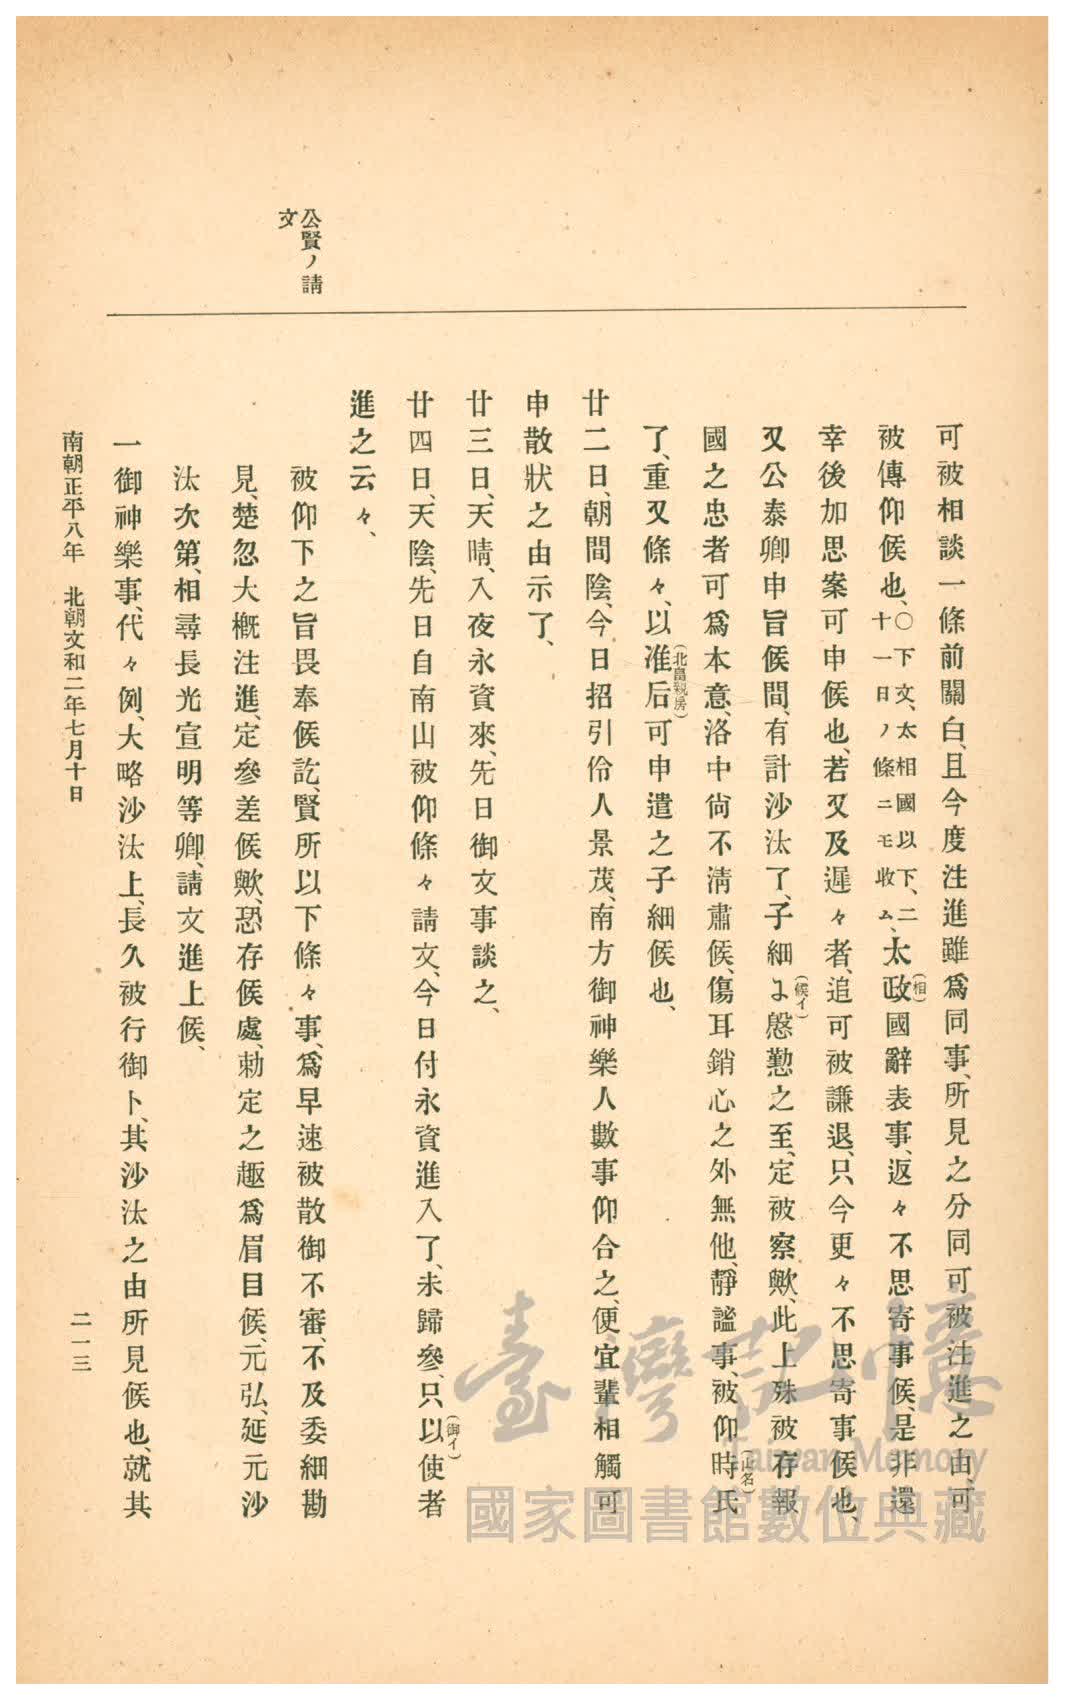 公賢ノ請
文
可被相談一條前關白、且今度注進雖爲同事、所見之分同可被注進之由、可
被傳仰候也、〇下文、太相國以下、二十一日ノ條ニモ收ム、太政(相)國辭表事、返々不思寄事候、是非還
幸後加思案可申候也、若又及遲々者、追可被謙退、只今更々不思寄事候也、
又公泰卿申旨候間、有計沙汰了、子細(候イ)慇懃之至、定被察歟、此上殊被存報
國之忠者可爲本意、洛中尙不淸肅候、傷耳銷心之外無他、靜謐事、被仰時氏(山名)
了、重又條々、以准后(北畠親房)可申遣之子細候也、
廿二日、朝間陰、今日招引伶人景茂、南方御神樂人數事仰合之、便宜輩相觸可
申散狀之由示了、
廿三日、天晴、入夜永資來、先日御文事談之、
廿四日、天陰、先日自南山被仰條々請文、今日付永資進入了、未歸參、只以(御イ)使者
進之云々、
被仰下之旨畏奉候訖、賢所以下條々事、爲早速被散御不審、不及委細勘
見、楚忽大槪注進、定參差候歟、恐存候處、勅定之趣爲眉目候、元弘、延元沙
汰次第、相尋長光宣明等卿、請文進上候、
一御神樂事、代々例、大略沙汰上、長久被行御卜、其沙汰之由所見候也、就其
南朝正平八年 北朝文和二年七月十日
二一三
臺灣記憶
Taiwan Memory
國家圖書館數位典藏